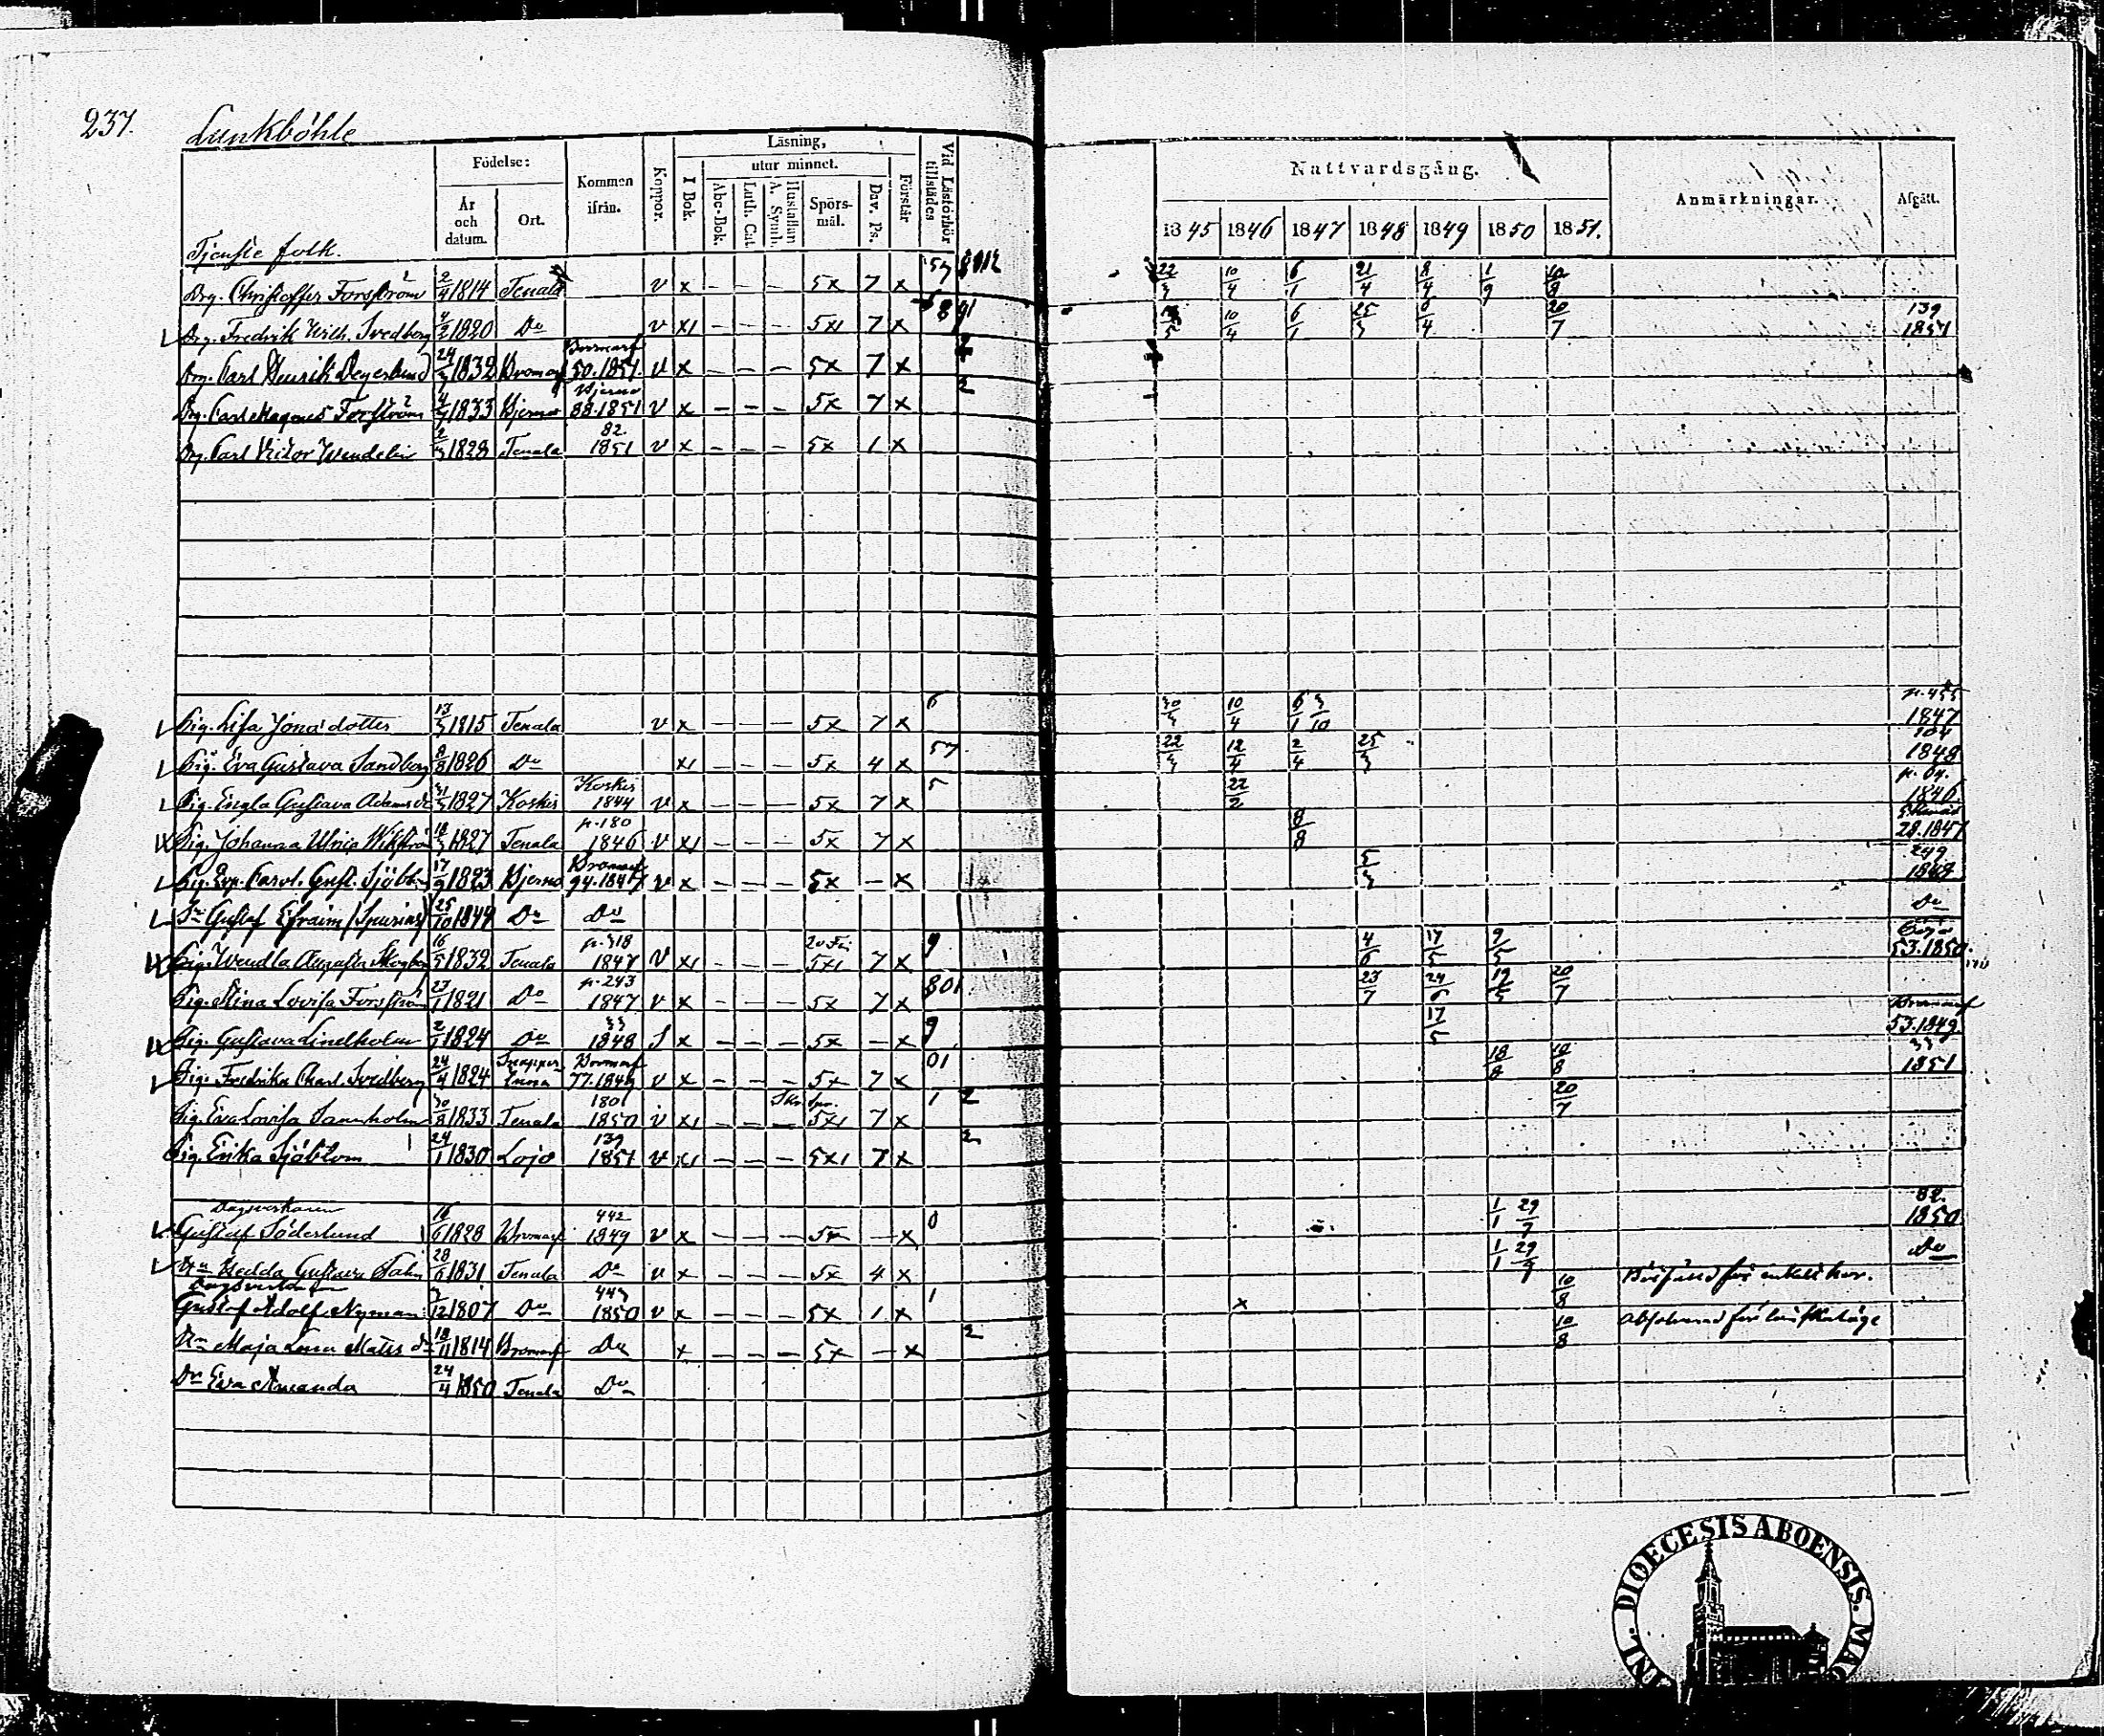 237.
Lunkböhle
Födelse:
Kommen ifrån.
Koppor.
Läsning,
I Bok.
utur minnet.
Abc-Bok.
Luth. Cat.
Hustaflan A. Symb.
Spörs-mål.
Dav. Ps.
Förstår
Vid Läsförhör tillstädes
År och datum.
Ort.
Nattvardsgång.
Anmärkningar.
Afgått.
1845 1846 1847 1848 1849 1850 1851.
Tjenste folk.
Drg. Christoffer Forsström 2/4 1814 Tenala v x - - - 5x 7 x 22/3 10/4 6/1 21/4 8/4 1/9 10/8
Drg. Fredrik Wilh. Svedberg 4/2 1820 Do v x - - - 5x 7 x 10/4 6/1 25/3 20/7 139 1851
Drg. Carl Henrik Degerlund 24/3 1832 Bromarf Bromarf 50.1851 v x - - - 5x 7 x
Drg. Carl Magnus Forsström 1833 Bjerno Bjerno 88.1851 v x - - - 5x 7 x 2
Drg. Carl Victor Wendelin 2/3 1828 Tenala 82. 1851 v x - - - 5x 1 x
Pig. Lisa Jonasdotter 13/3 1815 Tenala v x - - - 5x 7 x 6 30/3 10/4 6/1 3/10 p. 455 1847
Pig. Eva Gustava Sandberg 8/8 1826 Do x - - - 5x 4 x 57 22/3 12/4 2/4 25/3 204 1848
Pig. Engla Gustava Adamsdr 1827 Koskis Koskis 1844 v x - - - 5x 7 x 5 22/2 1846
Pig. Johanna Ulrica Wikström 18/3 1827 Tenala p. 180 1846 v x - - - 5x 7 x 8/8 28.1847
Pig. Eva Carol. Gust. Sjöbl. 17/9 1823 Bjerno Bromarf 94.1847 v x - - - 5x - x 5/3 249 1848
Gustaf Efraim (Spurius) 25/10 1844 Do Do Do
Pig. Wendla Augusta Skogberg 16/5 1832 Tenala p. 318 1847 v x - - - 5x 7 x 9 4/6 17/5 9/5 53.1850
Pig. Stina Lovisa Forsström 23/1 1821 Do p. 243 1847 v x - - - 5x 7 x 801 23/7 24/6 20/7
Pig. Gustava Lindholm 2/1 1824 Do 33 1848 x - - - 5x - x 9 17/5 Bromarf 53.1849
Pig. Fredrika Charl. Svedberg 24/4 1824 Bromarf 77.1849 v x - - - 5x 7 x 01 18/8 10/8 33 1851
Pig. Eva Lovisa Sannholm 30/8 1833 Tenala 180 1850 v x - - - 5x 7 x 1 2 20/7
Pig. Erika Sjöblom 24/1 1830 Lojo 139 1851 v x - - - 5x 7 x 2
Dagsverkaren
Gustaf Söderlund 16/6 1828 Bromarf 442 1849 v x - - - 5x - x 0 1/1 29/7 82. 1850
Hu Hedda Gustava 28/6 1831 Tenala Do v x - - - 5x 4 x 1/1 29/7 Do
Gustaf Adolf Nyman 3/12 1807 Do 443 1850 v x - - - 5x 1 x 1 x 10/8
Hu Maja Lena Matts dr 18/11 1814 Bromarf Do x - - - 5x - x 2 10/8
Dr Eva Amanda 24/4 1850 Tenala Do
DIOECESIS ABOENSIS.